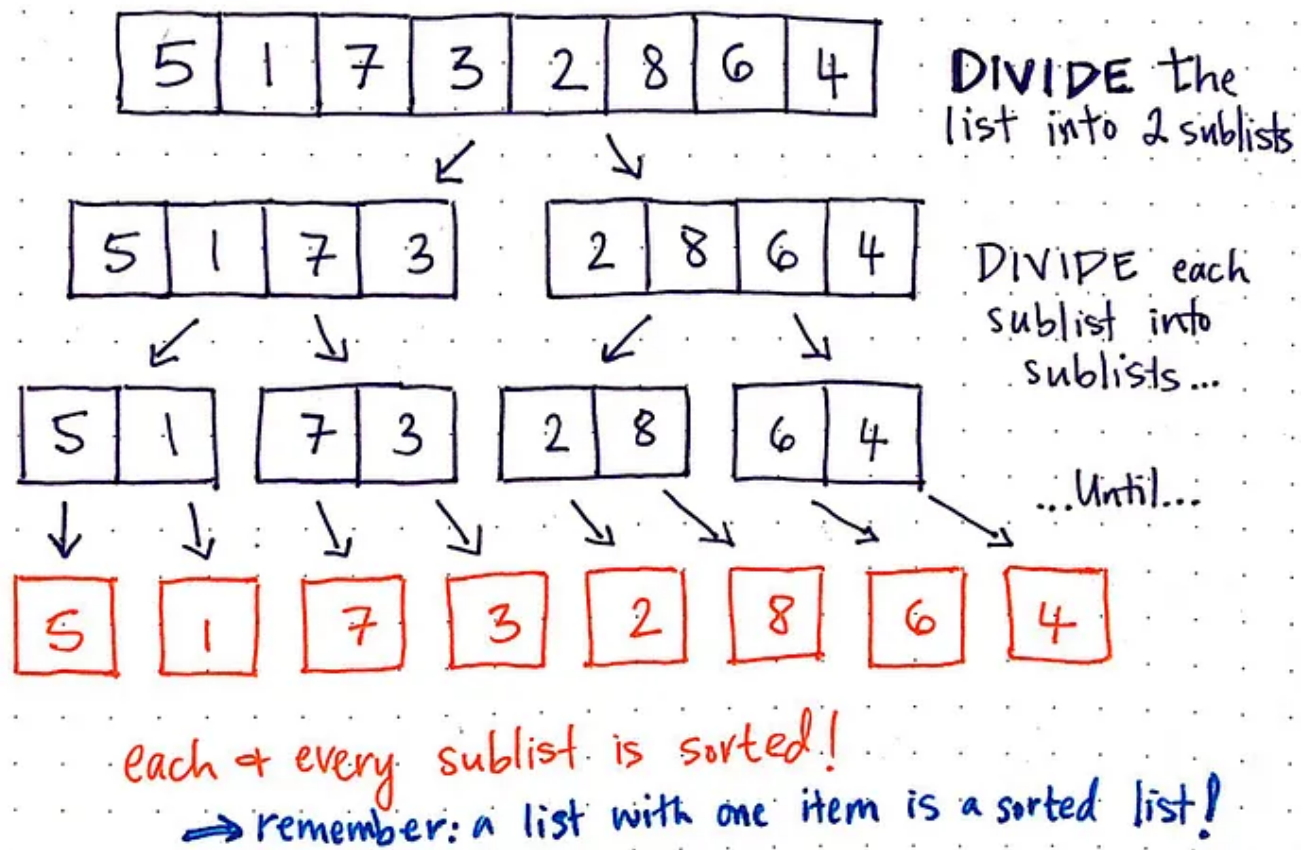 5 1 7 3 2 8 6 4
DIVIDE the
list into 2 sublists
5 1 7 3
2 8 6 4
DIVIDE each
sublist into
sublists...
5 1
7 3
2 8
6 4
...Until...
5 1 7 3 2 8 6 4
each & every sublist is sorted!
⇒ remember: a list with one item is a sorted list!